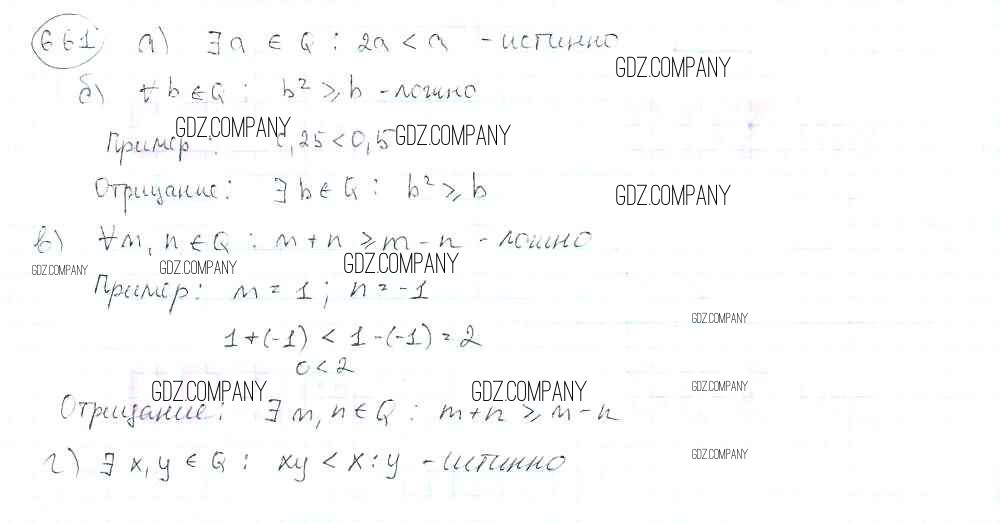 661 а) ∃a ∈ Q : 2a < a - истинно
GDZ.COMPANY
б) ∀b ∈ Q : b² ≥ b - ложно
GDZ.COMPANY
Пример : 0,25 < 0,5 GDZ.COMPANY
Отрицание : ∃b ∈ Q : b² ≥ b GDZ.COMPANY
в) ∀m, n ∈ Q : m + n ≥ m - n - ложно
GDZ.COMPANY GDZ.COMPANY GDZ.COMPANY
Пример : m = 1 ; n = -1
GDZ.COMPANY
1 + (-1) < 1 - (-1) = 2
0 < 2
GDZ.COMPANY GDZ.COMPANY GDZ.COMPANY
Отрицание : ∃ m, n ∈ Q : m + n ≥ m - n
г) ∃ x, y ∈ Q : xy < x : y - истинно
GDZ.COMPANY